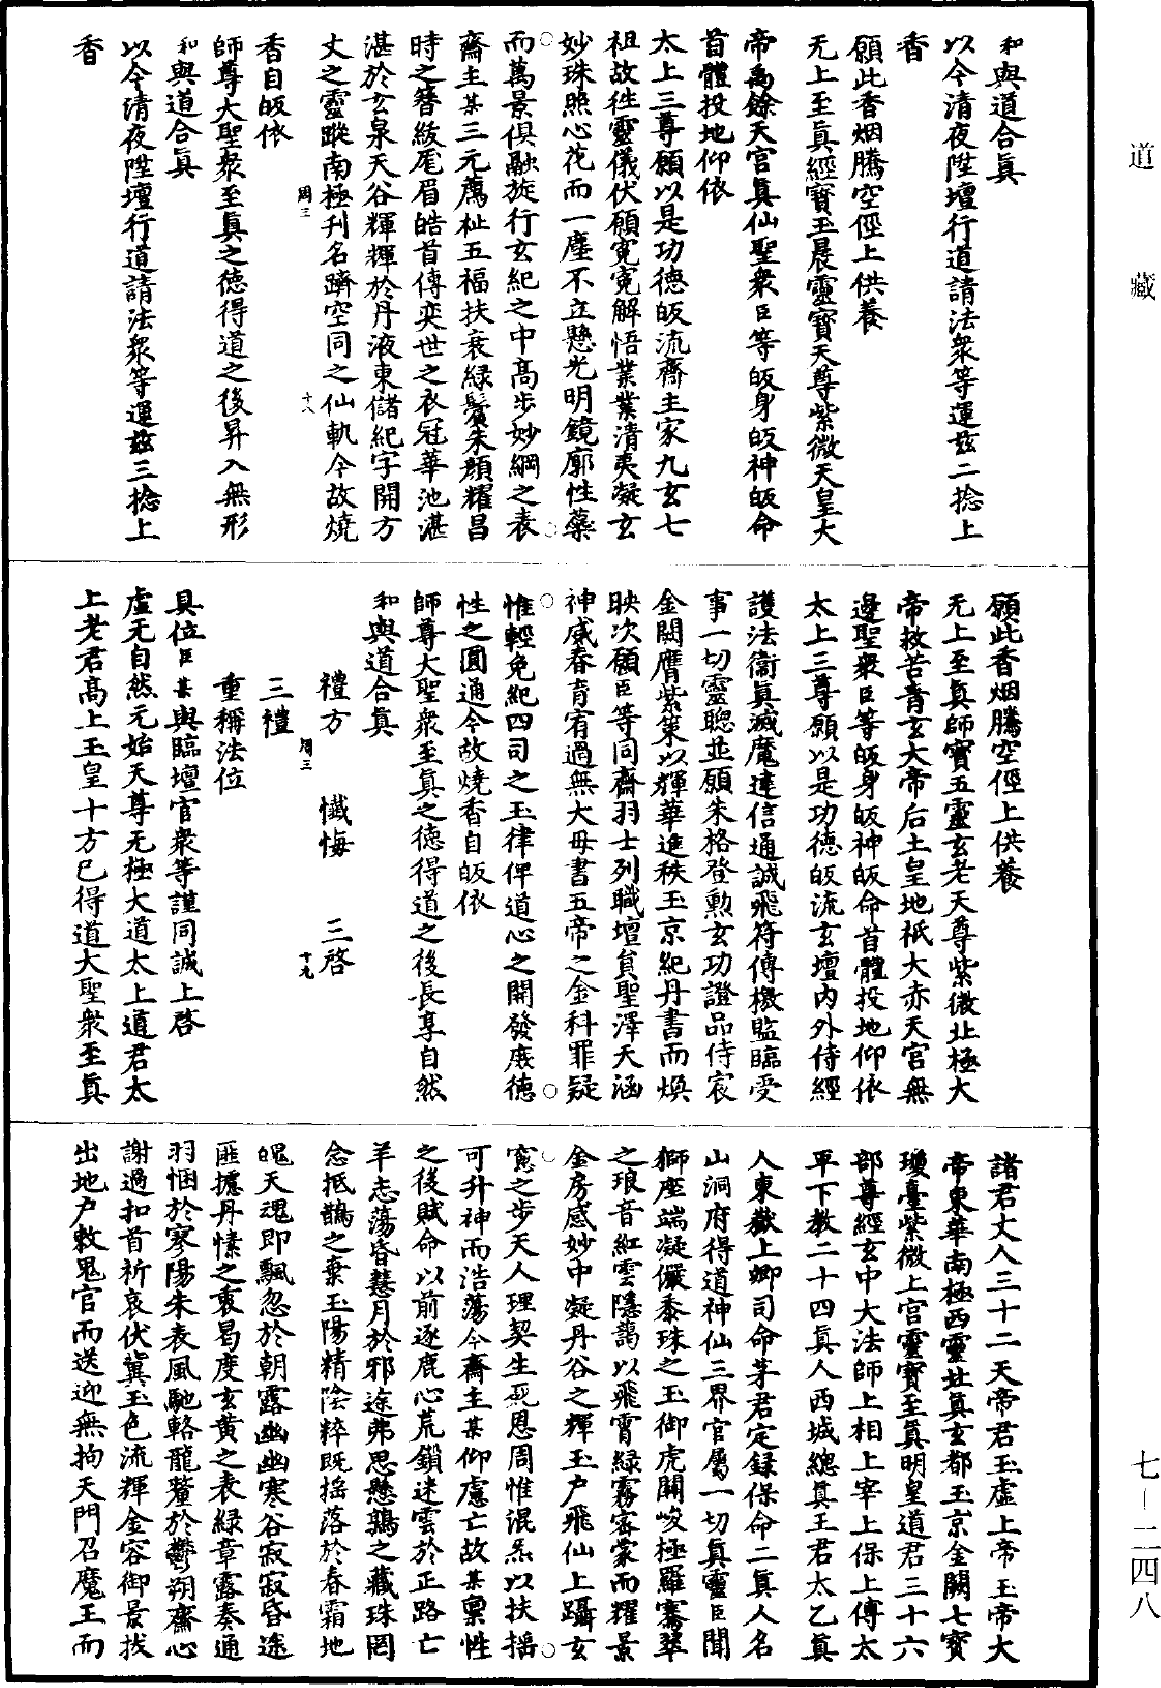 道藏
和與道合眞
以今清夜陞壇行道請法衆等運玆二捻上
香
願此香烟騰空徑上供養
无上至眞經寶玉晨靈寶天尊紫微天皇大
帝禹餘天宫眞仙聖衆臣等皈身皈神皈命
首體投地仰依
太上三尊願以是功德皈流齋主家九玄七
祖故徃靈儀伏願寃寃解悟業業清夷凝玄
妙珠照心花而一塵不立懸光明鏡廓性蘂
而萬景俱融旋行玄紀之中高步妙綱之表
齋主某三元薦祉五福扶衰緑鬢朱顔耀昌
時之簪紱厖眉皓首傳奕世之衣冠華池湛
湛於玄泉天谷輝輝於丹液東儲紀字開方
丈之靈蹤南極刋名躋空同之仙軌今故燒
周三
十八
香自皈依
師尊大聖衆至眞之德得道之後昇入無形
和與道合眞
以今清夜陞壇行道請法衆等運玆三捻上
香
願此香烟騰空徑上供養
无上至眞師寶五靈玄老天尊紫微北極大
帝救苦青玄大帝后土皇地祇大赤天宫無
邊聖衆臣等皈身皈神皈命首體投地仰依
太上三尊願以是功德皈流玄壇内外侍經
護法衞眞滅魔達信通誠飛符傳檄監臨受
事一切靈聰並願朱格登勳玄功證品侍宸
金闕膺紫策以輝華進秩玉京紀丹書而煥
映次願臣等同齋羽士列職壇貟聖澤天涵
神威春育宥過無大毋書五帝之金科罪疑
惟輕免紀四司之玉律俾道心之開發底德
性之圓通今故燒香自皈依
師尊大聖衆至眞之德得道之後長享自然
和與道合眞
禮方　懴悔　三啓
周三
十九
三禮
重稱法位
具位臣某與臨壇官衆等謹同誠上啓
虚无自然元始天尊无極大道太上道君太
上老君高上玉皇十方已得道大聖衆至眞
諸君丈人三十二天帝君玉虚上帝玉帝大
帝東華南極西靈北眞玄都玉京金闕七寶
瓊臺紫微上宫靈寶至眞明皇道君三十六
部尊經玄中大法師上相上宰上保上傅太
平下教二十四眞人西城總眞王君太乙眞
人東嶽上卿司命茅君定録保命二眞人名
山洞府得道神仙三界官屬一切眞靈臣聞
獅座端凝儼黍珠之玉御虎關峻極羅騫翠
之琅音紅雲隱藹以飛霄緑霧霮蒙而耀景
金房感妙中凝丹谷之輝玉户飛仙上躡玄
寃之步天人理契生死恩周惟混炁以扶揺
可升神而浩蕩今齋主某仰慮亡故某禀性
之後賦命以前逐鹿心荒鎖迷雲於正路亡
羊志蕩昏慧月於邪途弗思懸鶉之藏珠罔
念抵鵲之棄玉陽精陰粹既揺落於春霜地
魄天魂即飄忽於朝露幽幽寒谷寂寂昏途
匪攄丹愫之衷曷度玄黄之表緑章露奏通
羽悃於寥陽朱表風馳輅龍釐於鬱朔齋心
謝過扣首祈哀伏冀玉色流輝金容御景拔
出地户敕鬼官而送迎無拘天門召魔王而
七—二四八